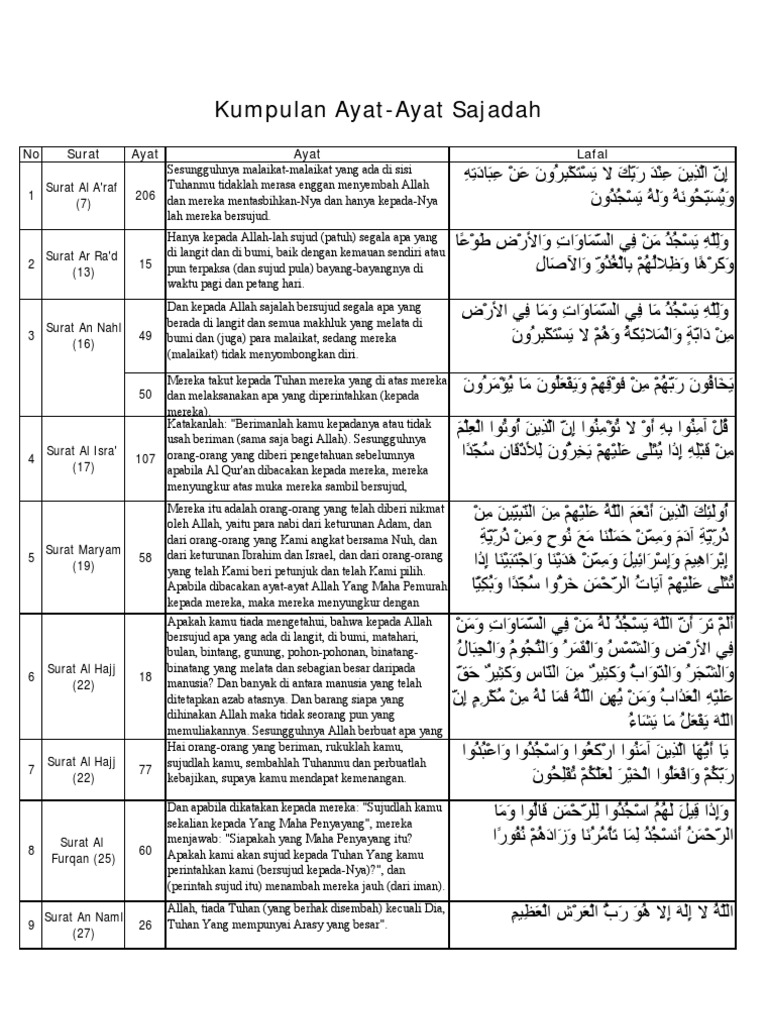 Kumpulan Ayat-Ayat Sajadah
No Surat Ayat Ayat Lafal
1
Surat Al A'raf
(7)
206
Sesungguhnya malaikat-malaikat yang ada di sisi
Tuhanmu tidaklah merasa enggan menyembah Allah
dan mereka mentasbihkan-Nya dan hanya kepada-Nya
lah mereka bersujud.
إِنَّ الَّذِينَ عِنْدَ رَبِّكَ لا يَسْتَكْبِرُونَ عَنْ عِبَادَتِهِ
وَيُسَبِّحُونَهُ وَلَهُ يَسْجُدُونَ
2
Surat Ar Ra'd
(13)
15
Hanya kepada Allah-lah sujud (patuh) segala apa yang
di langit dan di bumi, baik dengan kemauan sendiri atau
pun terpaksa (dan sujud pula) bayang-bayangnya di
waktu pagi dan petang hari.
وَلِلَّهِ يَسْجُدُ مَنْ فِي السَّمَاوَاتِ وَالأرْضِ طَوْعًا
وَكَرْهًا وَظِلالُهُمْ بِالْغُدُوِّ وَالآصَالِ
3
Surat An Nahl
(16)
49
Dan kepada Allah sajalah bersujud segala apa yang
berada di langit dan semua makhluk yang melata di
bumi dan (juga) para malaikat, sedang mereka
(malaikat) tidak menyombongkan diri.
وَلِلَّهِ يَسْجُدُ مَا فِي السَّمَاوَاتِ وَمَا فِي الأرْضِ
مِنْ دَابَّةٍ وَالْمَلائِكَةُ وَهُمْ لا يَسْتَكْبِرُونَ
50
Mereka takut kepada Tuhan mereka yang di atas mereka
dan melaksanakan apa yang diperintahkan (kepada
mereka).
يَخَافُونَ رَبَّهُمْ مِنْ فَوْقِهِمْ وَيَفْعَلُونَ مَا يُؤْمَرُونَ
4
Surat Al Isra'
(17)
107
Katakanlah: "Berimanlah kamu kepadanya atau tidak
usah beriman (sama saja bagi Allah). Sesungguhnya
orang-orang yang diberi pengetahuan sebelumnya
apabila Al Qur'an dibacakan kepada mereka, mereka
menyungkur atas muka mereka sambil bersujud,
قُلْ آمِنُوا بِهِ أَوْ لا تُؤْمِنُوا إِنَّ الَّذِينَ أُوتُوا الْعِلْمَ
مِنْ قَبْلِهِ إِذَا يُتْلَى عَلَيْهِمْ يَخِرُّونَ لِلأذْقَانِ سُجَّدًا
5
Surat Maryam
(19)
58
Mereka itu adalah orang-orang yang telah diberi nikmat
oleh Allah, yaitu para nabi dari keturunan Adam, dan
dari orang-orang yang Kami angkat bersama Nuh, dan
dari keturunan Ibrahim dan Israel, dan dari orang-orang
yang telah Kami beri petunjuk dan telah Kami pilih.
Apabila dibacakan ayat-ayat Allah Yang Maha Pemurah
kepada mereka, maka mereka menyungkur dengan
أُولَئِكَ الَّذِينَ أَنْعَمَ اللَّهُ عَلَيْهِمْ مِنَ النَّبِيِّينَ مِنْ
ذُرِّيَّةِ آدَمَ وَمِمَّنْ حَمَلْنَا مَعَ نُوحٍ وَمِنْ ذُرِّيَّةِ
إِبْرَاهِيمَ وَإِسْرَائِيلَ وَمِمَّنْ هَدَيْنَا وَاجْتَبَيْنَا إِذَا
تُتْلَى عَلَيْهِمْ آيَاتُ الرَّحْمَنِ خَرُّوا سُجَّدًا وَبُكِيًّا
6
Surat Al Hajj
(22)
18
Apakah kamu tiada mengetahui, bahwa kepada Allah
bersujud apa yang ada di langit, di bumi, matahari,
bulan, bintang, gunung, pohon-pohonan, binatang-
binatang yang melata dan sebagian besar daripada
manusia? Dan banyak di antara manusia yang telah
ditetapkan azab atasnya. Dan barang siapa yang
dihinakan Allah maka tidak seorang pun yang
memuliakannya. Sesungguhnya Allah berbuat apa yang
أَلَمْ تَرَ أَنَّ اللَّهَ يَسْجُدُ لَهُ مَنْ فِي السَّمَاوَاتِ وَمَنْ
فِي الأرْضِ وَالشَّمْسُ وَالْقَمَرُ وَالنُّجُومُ وَالْجِبَالُ
وَالشَّجَرُ وَالدَّوَابُّ وَكَثِيرٌ مِنَ النَّاسِ وَكَثِيرٌ حَقَّ
عَلَيْهِ الْعَذَابُ وَمَنْ يُهِنِ اللَّهُ فَمَا لَهُ مِنْ مُكْرِمٍ إِنَّ
اللَّهَ يَفْعَلُ مَا يَشَاءُ
7
Surat Al Hajj
(22)
77
Hai orang-orang yang beriman, rukuklah kamu,
sujudlah kamu, sembahlah Tuhanmu dan perbuatlah
kebajikan, supaya kamu mendapat kemenangan.
يَا أَيُّهَا الَّذِينَ آمَنُوا ارْكَعُوا وَاسْجُدُوا وَاعْبُدُوا
رَبَّكُمْ وَافْعَلُوا الْخَيْرَ لَعَلَّكُمْ تُفْلِحُونَ
8
Surat Al
Furqan (25)
60
Dan apabila dikatakan kepada mereka: "Sujudlah kamu
sekalian kepada Yang Maha Penyayang", mereka
menjawab: "Siapakah yang Maha Penyayang itu?
Apakah kami akan sujud kepada Tuhan Yang kamu
perintahkan kami (bersujud kepada-Nya)?", dan
(perintah sujud itu) menambah mereka jauh (dari iman).
وَإِذَا قِيلَ لَهُمُ اسْجُدُوا لِلرَّحْمَنِ قَالُوا وَمَا
الرَّحْمَنُ أَنَسْجُدُ لِمَا تَأْمُرُنَا وَزَادَهُمْ نُفُورًا
9
Surat An Naml
(27)
26
Allah, tiada Tuhan (yang berhak disembah) kecuali Dia,
Tuhan Yang mempunyai Arasy yang besar".
اللَّهُ لا إِلَهَ إِلا هُوَ رَبُّ الْعَرْشِ الْعَظِيمِ